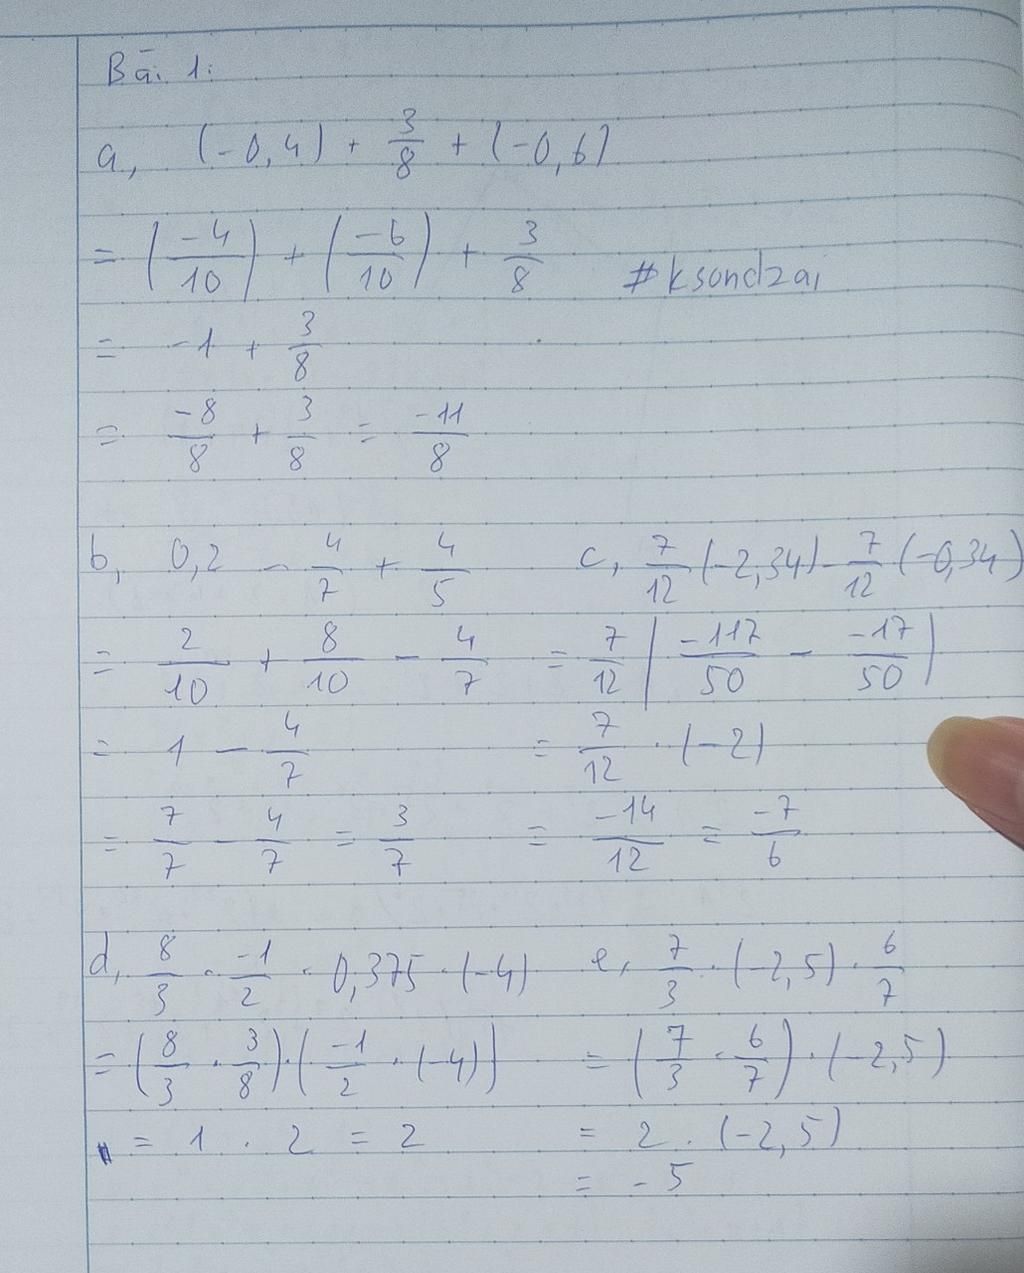 Bài 1:
a, (-0,4) + 3/8 + (-0,6)
= (-4/10) + (-6/10) + 3/8
#ksondzai
= -1 + 3/8
= -8/8 + 3/8 = -11/8
b, 0,2 - 4/7 + 4/5
= 2/10 + 8/10 - 4/7
= 1 - 4/7
= 7/7 - 4/7 = 3/7
c, 7/12 (-2,34) - 7/12 (-0,34)
= 7/12 (-117/50 - -17/50)
= 7/12 . (-2)
= -14/12 = -7/6
d, 8/3 . -1/2 . 0,375 . (-4)
= (8/3 . 3/8) . (-1/2 . (-4))
= 1 . 2 = 2
e, 7/3 . (-2,5) . 6/7
= (7/3 . 6/7) . (-2,5)
= 2 . (-2,5)
= -5